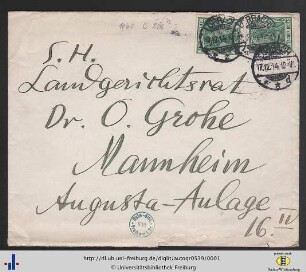 S. H.
Landgerichtsrat
Dr. O. Grohe
Mannheim
Augusta-Anlage
16. IV
17.12.14.
http://dl.ub.uni-freiburg.de/diglit/autogr0539/0001
© Universitätsbibliothek Freiburg